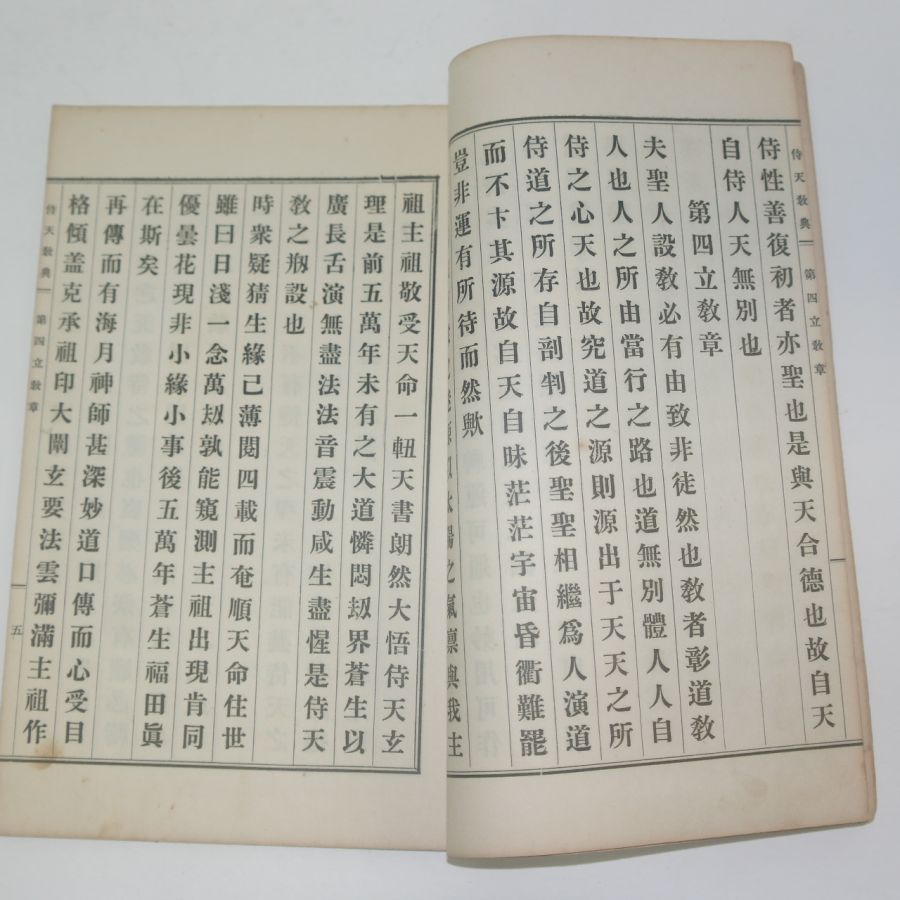 侍天敎典 第四立敎章
侍性善復初者亦聖也是與天合德也故自天
自侍人天無別也
第四立敎章
夫聖人設敎必有由致非徒然也敎者彰道敎
人也人之所由當行之路也道無別體人人自
侍之心天也故究道之源則源出于天天之所
侍道之所存自剖判之後聖聖相繼爲人演道
而不卞其源故自天自昧茫茫宇宙昏衢難罷
豈非運有所待而然歟
之氣凛與我主
祖主祖敬受天命一軸天書朗然大悟侍天玄
理是前五萬年未有之大道憐悶劫界蒼生以
廣長舌演無盡法法音震動咸生盡惺是侍天
敎之剏設也
時衆疑猜生緣己薄閱四載而奄順天命住世
雖曰日淺一念萬劫孰能窺測主祖出現肯同
優曇花現非小緣小事後五萬年蒼生福田眞
在斯矣
再傳而有海月神師甚深妙道口傳而心受目
格傾盖克承祖印大闡玄要法雲彌滿主祖作
侍天敎典 第四立敎章 五